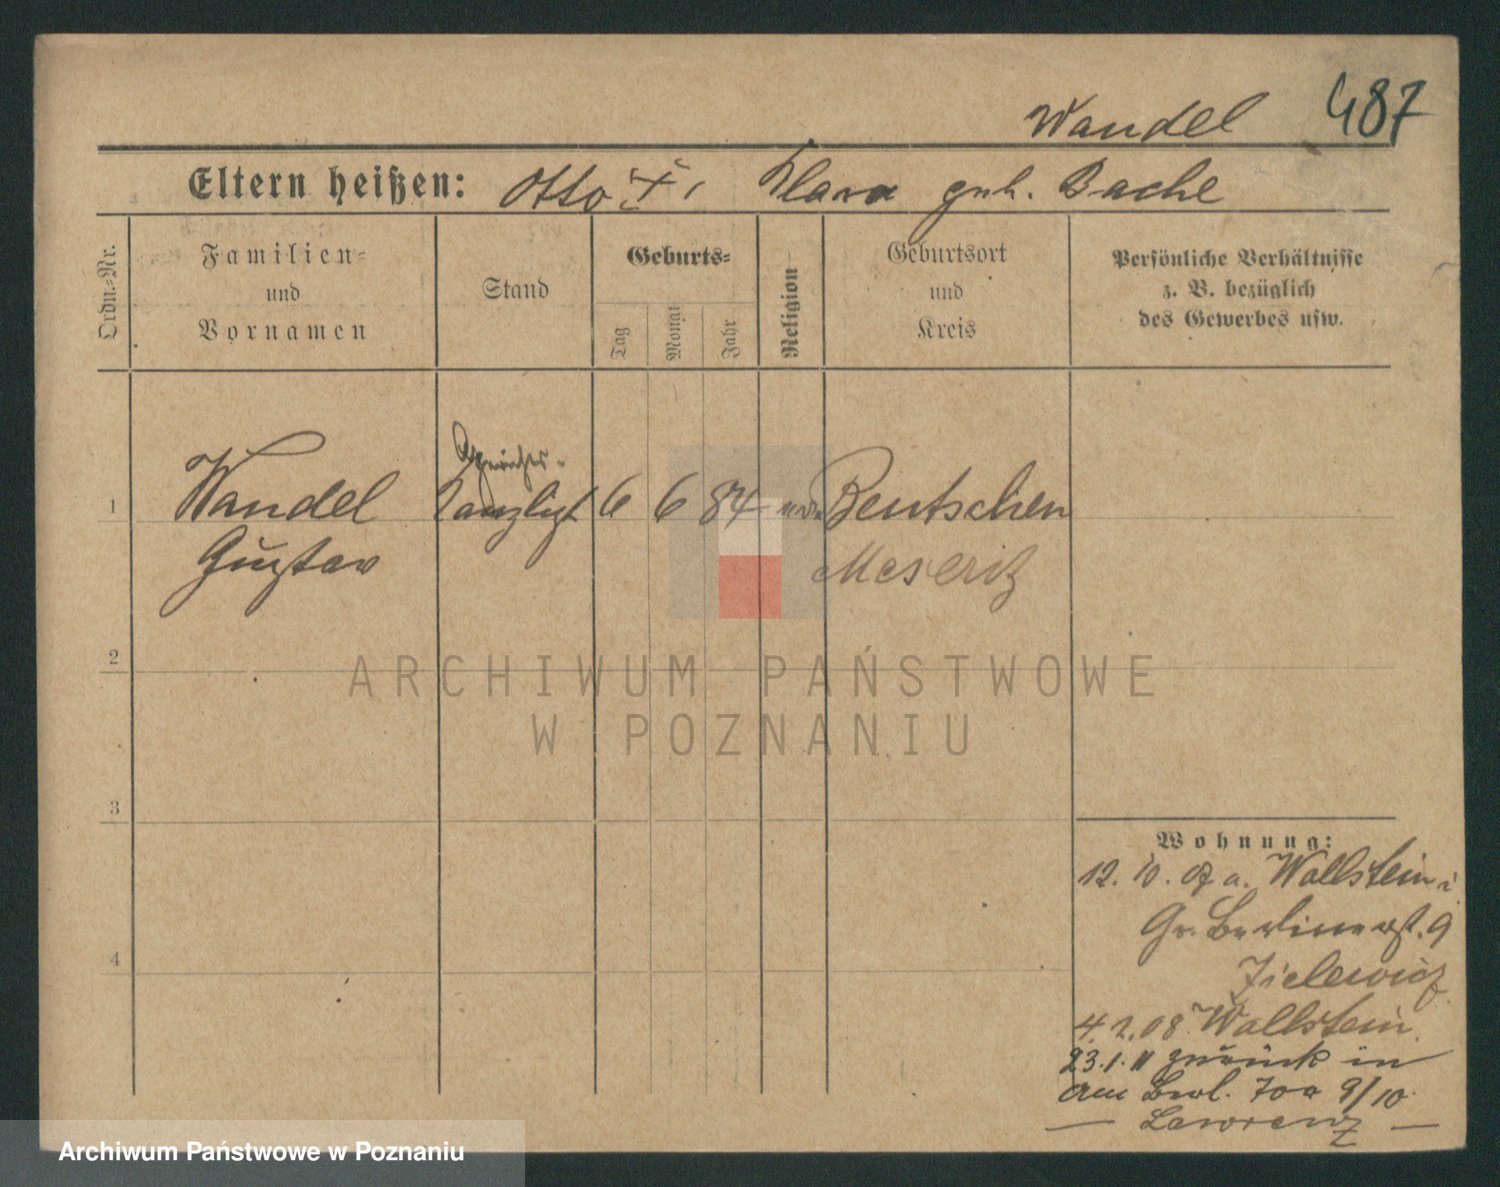 Wandel 487
Eltern heißen: Otto †, Klara geb. Bache
Ordn.-Nr.
Familien-
und
Vornamen
Stand
Geburts-
Tag
Monat
Jahr
Religion
Geburtsort
und
Kreis
Persönliche Verhältnisse
z. B. bezüglich
des Gewerbes usw.
1 Wandel Kanzlist 6 6 84 Bentschen
Gustav Meseritz
2
3
4
Wohnung:
12. 10. 07 a. Wollstein i
Gr. Berlinerst. 9
Zielewicz
4. 2. 08 Wollstein.
23.1.11 zurück in
Am Berl. Tor 9/10.
— Lawrenz —
ARCHIWUM PAŃSTWOWE
W POZNANIU
Archiwum Państwowe w Poznaniu